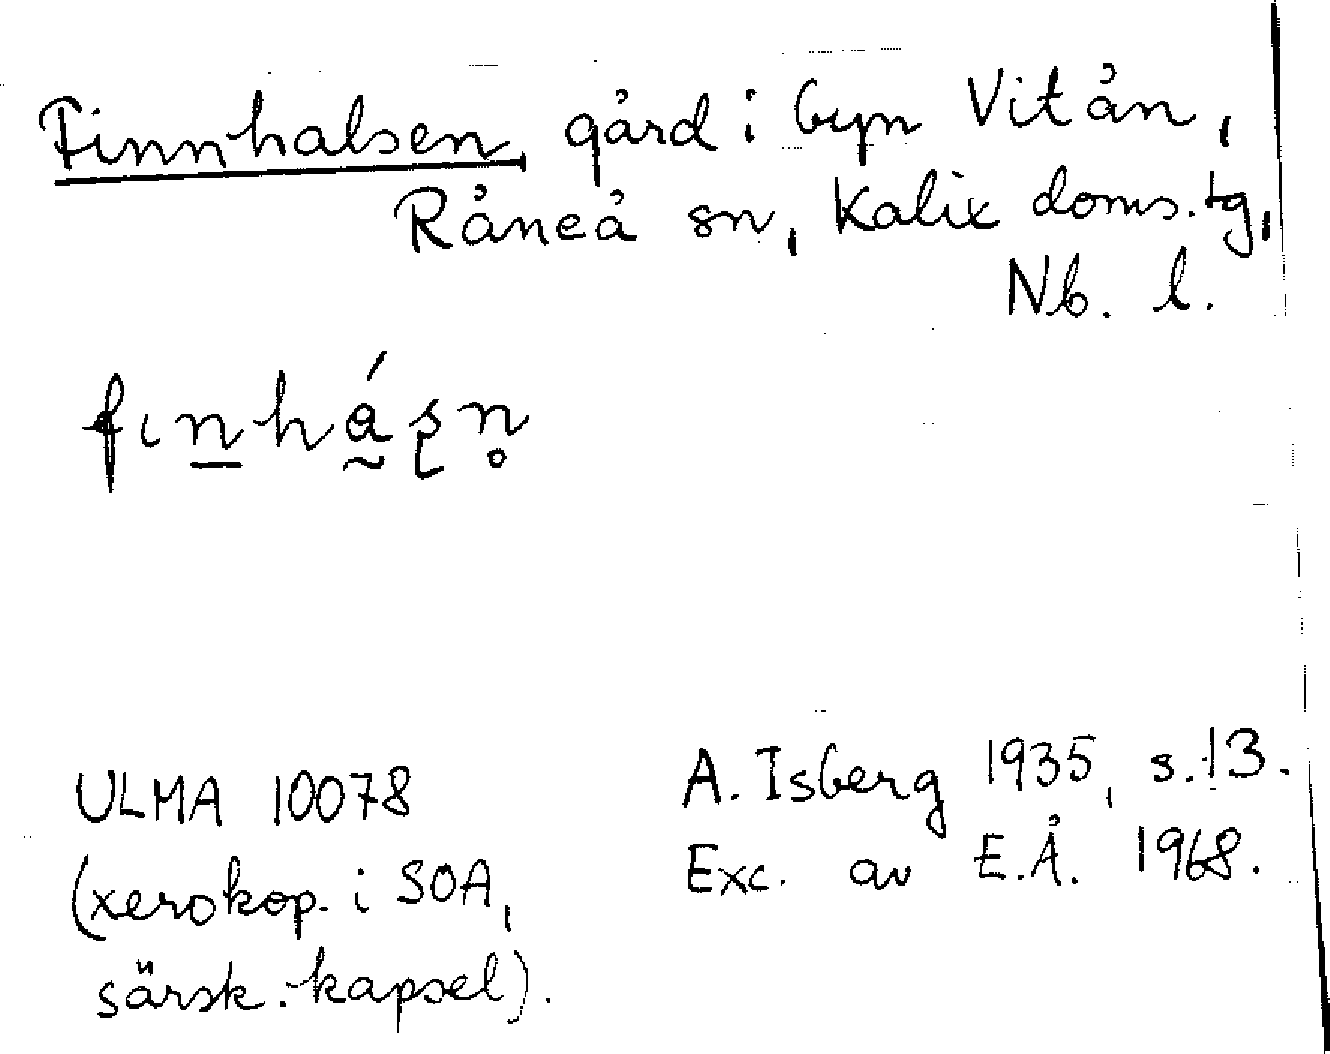 Finnhalsen, gård i byn Vitån,
Råneå sn, Kalix doms.tg,
Nb. l.
fɩn̲há̰ʂn̥
ULMA 10078
(xerokop. i SOA,
särsk. kapsel).
A. Isberg 1935, s. 13.
Exc. av E.Å. 1968.